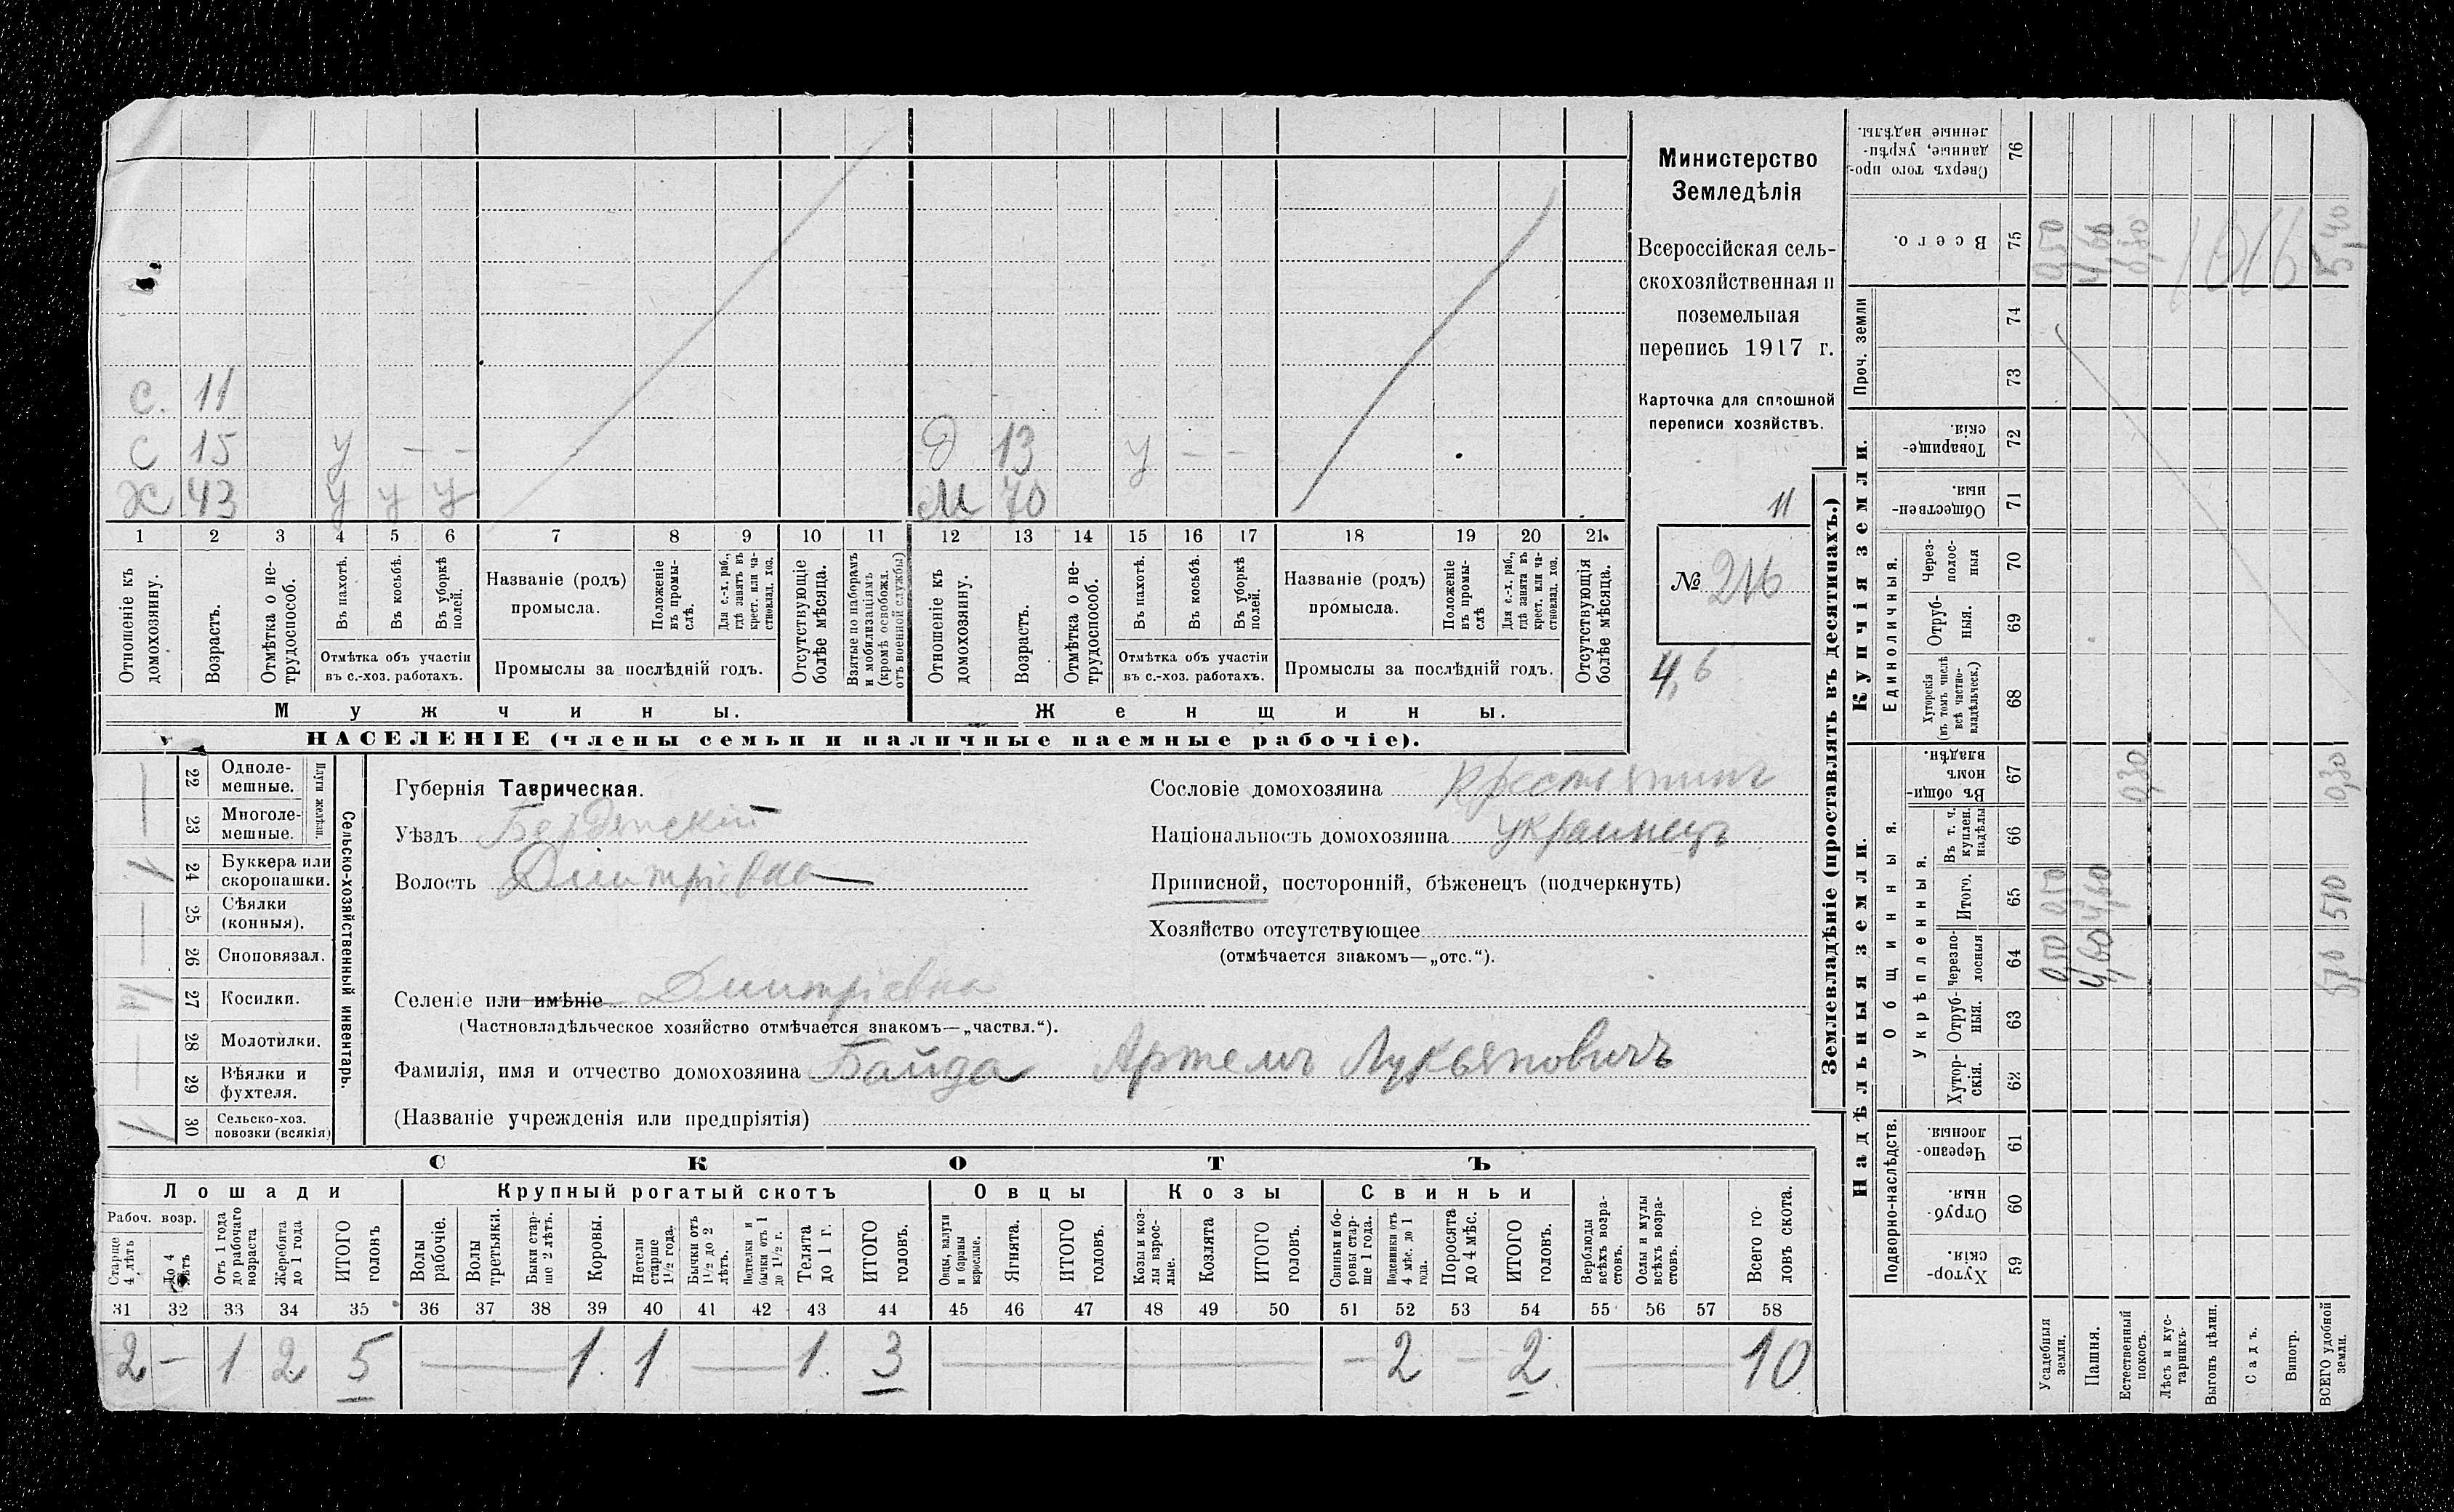 Министерство
Земледѣлія
Всероссійская сель-
скохозяйственная и
поземельная
перепись 1917 г.
Карточка для сплошной
переписи хозяйствъ.
11
№ 216
4,6
С. 11
С 15 у — —
Х 43 у у у
Д 13 у — —
М 70
1 2 3 4 5 6 7 8 9 10 11 12 13 14 15 16 17 18 19 20 21
Отношеніе къ домохозяину.
Возрастъ.
Отмѣтка о не-трудоспособ.
Въ пахотѣ.
Въ косьбѣ.
Въ уборкѣ полей.
Отмѣтка объ участіи
въ с.-хоз. работахъ.
Названіе (родъ)
промысла.
Положеніе въ промы-слѣ.
Для с.-х. раб., гдѣ занятъ въ крест. или ча-стновлад. хоз.
Промыслы за послѣдній годъ.
Отсутствующіе болѣе мѣсяца.
Взятые по наборамъ и мобилизаціямъ (кромѣ освобожд. отъ военной службы)
Отношеніе къ домохозяину.
Возрастъ.
Отмѣтка о не-трудоспособ.
Въ пахотѣ.
Въ косьбѣ.
Въ уборкѣ полей.
Отмѣтка объ участіи
въ с.-хоз. работахъ.
Названіе (родъ)
промысла.
Положеніе въ промы-слѣ
Для с.-х. раб., гдѣ занята въ крест. или ча-стновлад. хоз.
Промыслы за послѣдній годъ.
Отсутствующія болѣе мѣсяца.
Мужчины.
Женщины.
НАСЕЛЕНІЕ (члены семьи и наличные наемные рабочіе).
Сельско-хозяйственный инвентарь.
Плуги желѣзн.
22 Одноле-мешные.
23 Многоле-мешные.
24 Буккера или скоропашки. 1
25 Сѣялки (конныя).
26 Сноповязал.
27 Косилки.
28 Молотилки.
29 Вѣялки и фухтеля.
30 Сельско-хоз. повозки (всякія) 1
Губернія Таврическая.
Уѣздъ Бердянскій
Волость Дмитріевка
Селеніе или имѣніе Дмитріевка
(Частновладѣльческое хозяйство отмѣчается знакомъ—„частвл.“).
Фамилія, имя и отчество домохозяина Байда Артемъ Лукьяновичъ
(Названіе учрежденія или предпріятія)
Сословіе домохозяина Крестьянинъ
Національность домохозяина украинецъ
Приписной, посторонній, бѣженецъ (подчеркнуть)
Хозяйство отсутствующее
(отмѣчается знакомъ—„отс.“).
СКОТЪ
Лошади
Рабоч. возр.
Старше 4 лѣтъ
До 4 лѣтъ
Отъ 1 года до рабочаго возраста
Жеребята до 1 года
ИТОГО головъ
Крупный рогатый скотъ
Волы рабочіе.
Волы третьяки.
Быки стар-ше 2 лѣтъ.
Коровы.
Нетели старше 1½ года.
Бычки отъ 1½ до 2 лѣтъ.
Подтелки и бычки отъ 1 до 1½ г.
Телята до 1 г.
ИТОГО головъ.
Овцы
Овцы, валухи и бараны взрослые.
Ягнята.
ИТОГО головъ.
Козы
Козы и коз-лы взрос-лые.
Козлята
ИТОГО головъ.
Свиньи
Свиньи и бо-ровы стар-ше 1 года.
Подсвинки отъ 4 мѣс. до 1 года.
Поросята до 4 мѣс.
ИТОГО головъ.
Верблюды всѣхъ возра-стовъ.
Ослы и мулы всѣхъ возра-стовъ.
Всего го-ловъ скота.
31 32 33 34 35 36 37 38 39 40 41 42 43 44 45 46 47 48 49 50 51 52 53 54 55 56 57 58
2 — 1 2 5 — 1. 1 — 1. 3 — — 2 — 2 — 10
Землевладѣніе (проставлять въ десятинахъ.)
Надѣльныя земли.
Подворно-наслѣдств.
Хутор-скія. 59
Отруб-ныя. 60
Черезпо-лосныя. 61
Общинныя.
Укрѣпленныя.
Хутор-скія. 62
Отруб-ныя. 63
Черезпо-лосныя 64
Итого. 65
Въ т. ч. куплен. надѣлы 66
Въ общи-номъ владѣн. 67
Купчія земли.
Единоличныя.
Хуторскія (въ томъ числѣ всѣ частно-владѣльческ.) 68
Отруб-ныя. 69
Через-полос-ныя 70
Обществен-ныя. 71
Товарище-скія. 72
Проч. земли
73
74
Всего. 75
Сверхъ того про-данные, укрѣп-ленные надѣлы. 76
Усадебныя земли. 0,50 0,50 0,50
Пашня. 4,60 4,60 4,60
Естественный покосъ. 0,30 0,30
Лѣсъ и кус-тарникъ.
Выгонъ цѣлин.
Садъ.
Виногр.
ВСЕГО удобной земли. 5,10 5,10 0,30 5,40